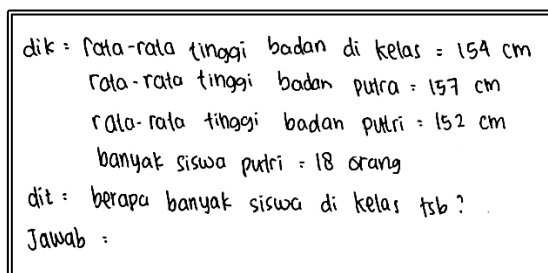 dik : rata-rata tinggi badan di kelas = 154 cm
rata-rata tinggi badan putra = 157 cm
rata-rata tinggi badan putri = 152 cm
banyak siswa putri = 18 orang
dit : berapa banyak siswa di kelas tsb ?
Jawab :